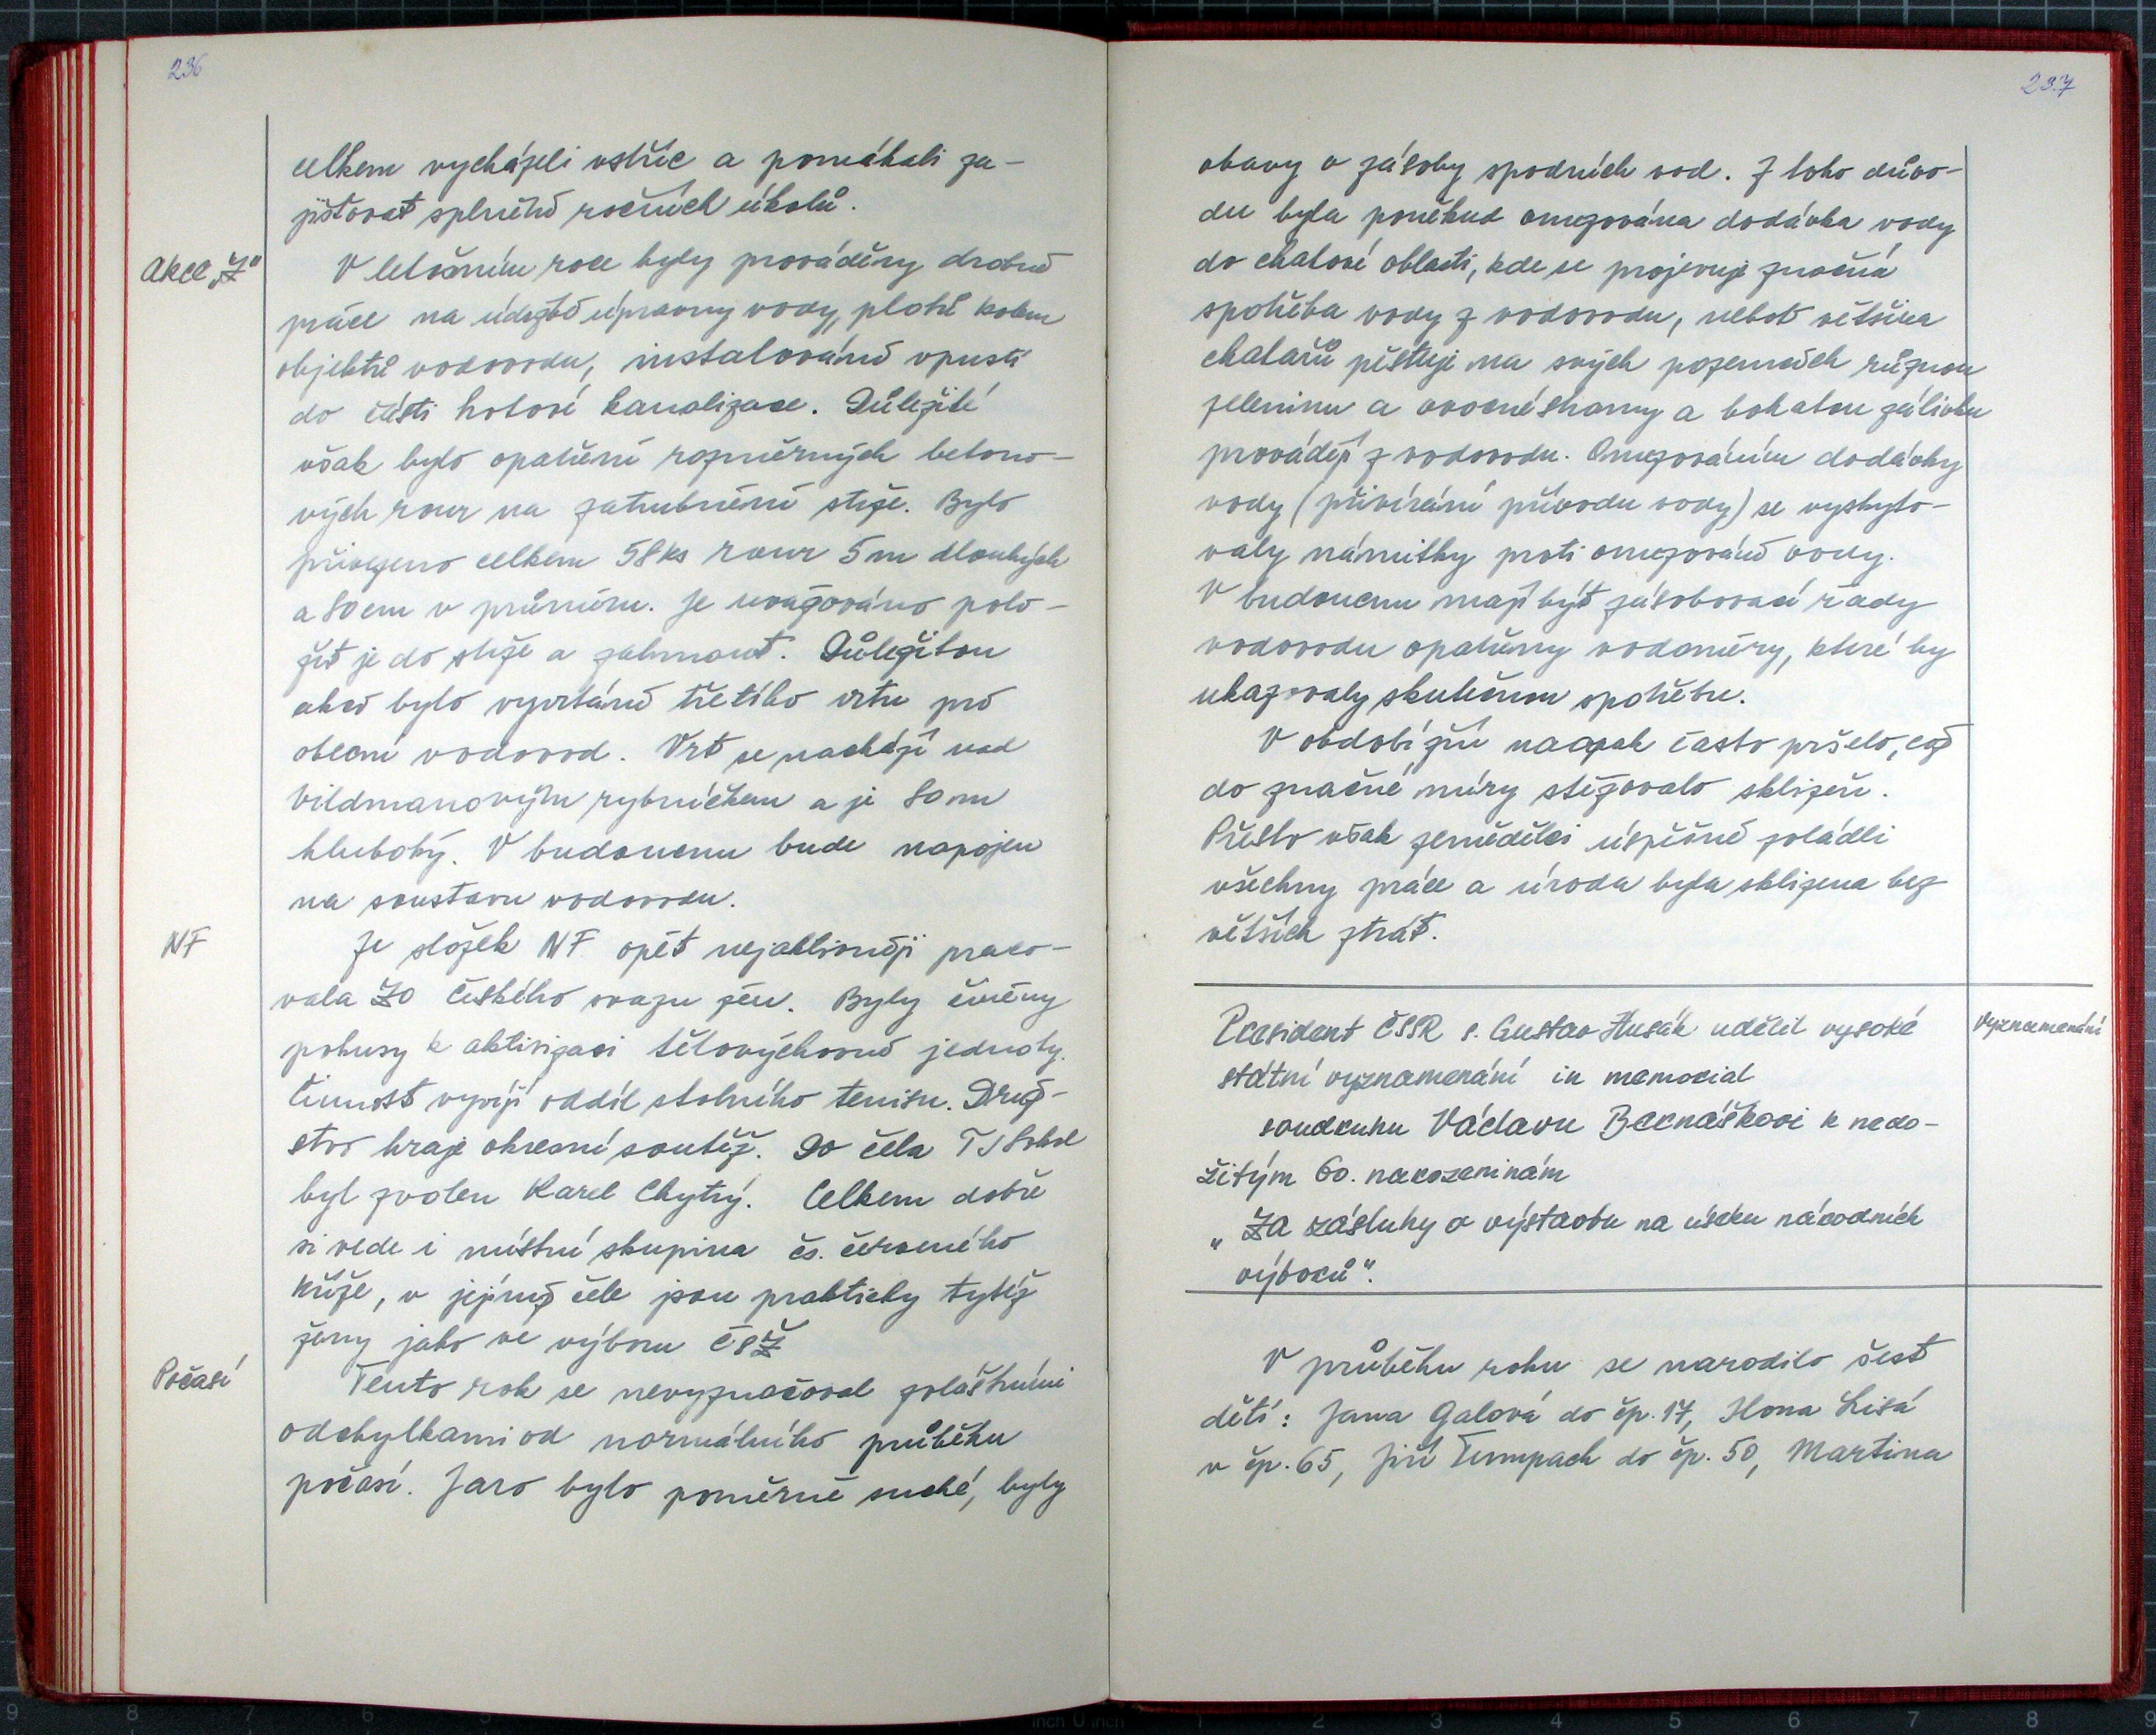 236
celkem vycházeli vstříc a pomáhali za-
jišťovat splnění ročních úkolů.
Akce „Z"
V letošním roce byly prováděny drobné
práce na údržbě úpravny vody, plotě kolem
objektů vodovodu, instalování vpustí
do části hotové kanalizace. Důležité
však bylo opatření rozměrných betono-
vých rour na zatrubnění stoze. Bylo
přivezeno celkem 58 ks rour 5 m dlouhých
a 80 cm v průměru. Je uvažováno polo-
žit je do stoze a zahrnout. Důležitou
akcí bylo vyvrtání třetího vrtu pro
obecní vodovod. Vrt se nachází nad
Vildmanovým rybníčkem a je 80 m
hluboký. V budoucnu bude napojen
na soustavu vodovodu.
NF
Ze složek NF opět nejaktivněji praco-
vala ZO Českého svazu žen. Byly činěny
pokusy k aktivizaci tělovýchovné jednoty.
Činnost vyvíjí oddíl stolního tenisu. Druž-
stvo hraje okresní soutěž. Do čela TJ Sokol
byl zvolen Karel Chytrý. Celkem dobře
si vede i místní skupina čs. červeného
kříže, v jejímž čele jsou prakticky tytéž
ženy jako ve výboru ČSŽ
Počasí
Tento rok se nevyznačoval zvláštními
odchylkami od normálního průběhu
počasí. Jaro bylo poměrně suché, byly
237
obavy o zásoby spodních vod. Z toho důvo-
du byla poněkud omezována dodávka vody
do chatové oblasti, kde se projevuje značná
spotřeba vody z vodovodu, neboť většina
chatařů pěstuje na svých pozemcích různou
zeleninu a ovocné stromy a bohatou zálivku
provádějí z vodovodu. Omezováním dodávky
vody (přivírání přívodu vody) se vyskyto-
valy námitky proti omezování vody.
V budoucnu mají být zásobovací řady
vodovodu opatřeny vodoměry, které by
ukazovaly skutečnou spotřebu.
V období žní naopak často pršelo, což
do značné míry stěžovalo sklizeň.
Přesto však zemědělci úspěšně zvládli
všechny práce a úroda byla sklizena bez
větších ztrát.
President ČSSR s. Gustav Husák udělil vysoké
Vyznamenání
státní vyznamenání in memorial
soudruhu Václavu Bernáškovi k nedo-
žitým 60. narozeninám
„Za zásluhy o výstavbu na úseku národních
výborů".
V průběhu roku se narodilo šest
dětí: Jana Galová do čp. 17, Ilona Lisá
v čp. 65, Jiří Tumpach do čp. 50, Martina